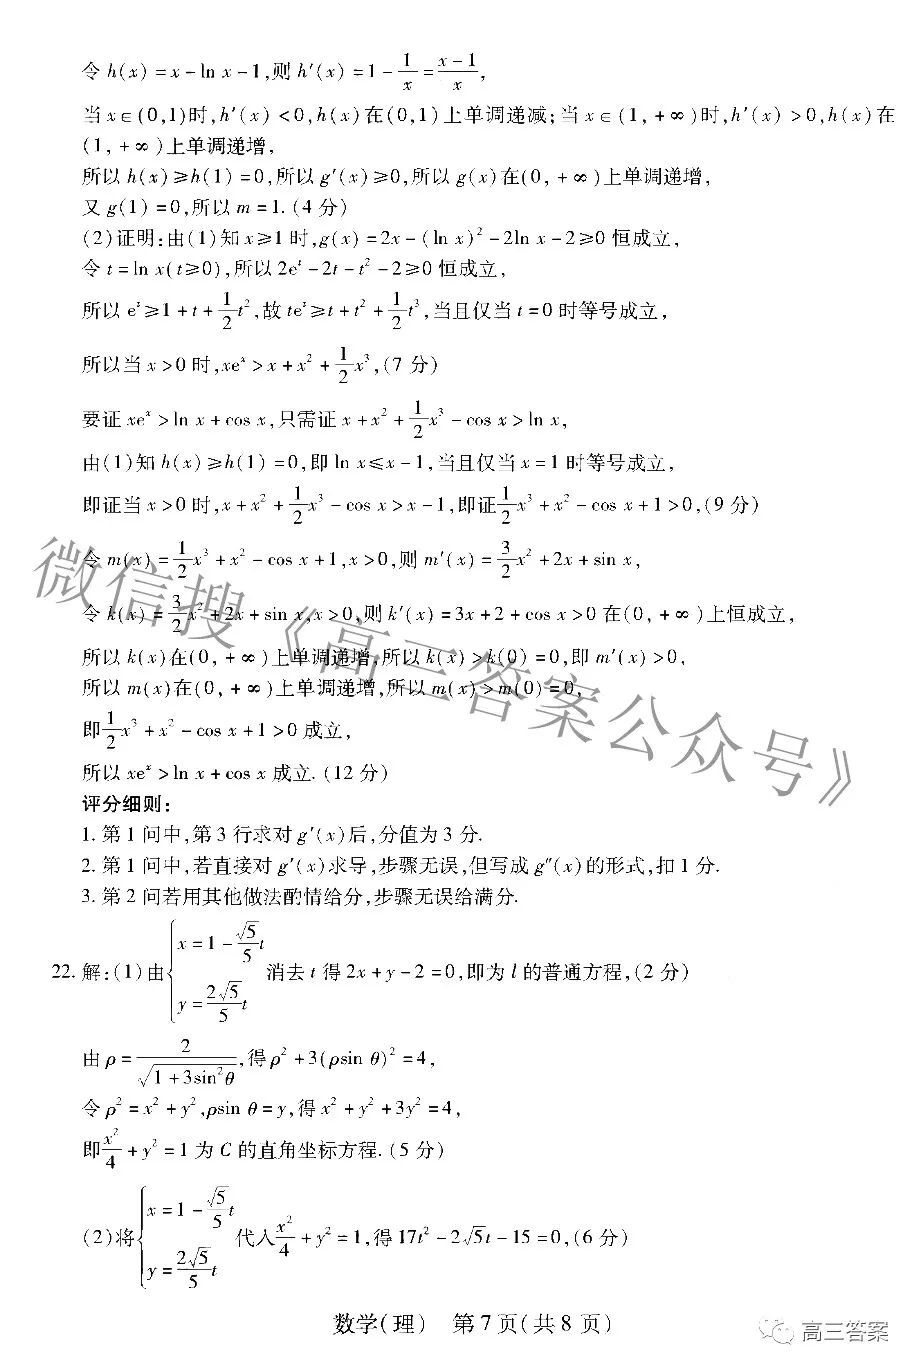 令 h(x)=x-ln x-1,则 h′(x)=1-\frac{1}{x}=\frac{x-1}{x},
当 x∈(0,1)时,h′(x)<0,h(x)在(0,1)上单调递减;当 x∈(1,+∞)时,h′(x)>0,h(x)在
(1,+∞)上单调递增,
所以 h(x)≥h(1)=0,所以 g′(x)≥0,所以 g(x)在(0,+∞)上单调递增,
又 g(1)=0,所以 m=1.(4 分)
(2)证明:由(1)知 x≥1 时,g(x)=2x-(ln x)²-2ln x-2≥0 恒成立,
令 t=ln x(t≥0),所以 2eᵗ-2t-t²-2≥0 恒成立,
所以 eᵗ≥1+t+\frac{1}{2}t²,故 teᵗ≥t+t²+\frac{1}{2}t³,当且仅当 t=0 时等号成立,
所以当 x>0 时,xeˣ>x+x²+\frac{1}{2}x³,(7 分)
要证 xeˣ>ln x+cos x,只需证 x+x²+\frac{1}{2}x³-cos x>ln x,
由(1)知 h(x)≥h(1)=0,即 ln x≤x-1,当且仅当 x=1 时等号成立,
即证当 x>0 时,x+x²+\frac{1}{2}x³-cos x>x-1,即证\frac{1}{2}x³+x²-cos x+1>0,(9 分)
令 m(x)=\frac{1}{2}x³+x²-cos x+1,x>0,则 m′(x)=\frac{3}{2}x²+2x+sin x,
令 k(x)=\frac{3}{2}x²+2x+sin x,x>0,则 k′(x)=3x+2+cos x>0 在(0,+∞)上恒成立,
所以 k(x)在(0,+∞)上单调递增,所以 k(x)>k(0)=0,即 m′(x)>0,
所以 m(x)在(0,+∞)上单调递增,所以 m(x)>m(0)=0,
即\frac{1}{2}x³+x²-cos x+1>0 成立,
所以 xeˣ>ln x+cos x 成立.(12 分)
评分细则:
1. 第 1 问中,第 3 行求对 g′(x)后,分值为 3 分.
2. 第 1 问中,若直接对 g′(x)求导,步骤无误,但写成 g″(x)的形式,扣 1 分.
3. 第 2 问若用其他做法酌情给分,步骤无误给满分.
22. 解:(1)由{x=1-\frac{√5}{5}t y=\frac{2√5}{5}t 消去 t 得 2x+y-2=0,即为 l 的普通方程,(2 分)
由 ρ=\frac{2}{\sqrt{1+3sin²θ}},得 ρ²+3(ρsin θ)²=4,
令 ρ²=x²+y²,ρsin θ=y,得 x²+y²+3y²=4,
即\frac{x²}{4}+y²=1 为 C 的直角坐标方程.(5 分)
(2)将{x=1-\frac{√5}{5}t y=\frac{2√5}{5}t 代入\frac{x²}{4}+y²=1,得 17t²-2√5t-15=0,(6 分)
数学(理) 第 7 页(共 8 页)
微信搜《高三答案公众号》
高三答案